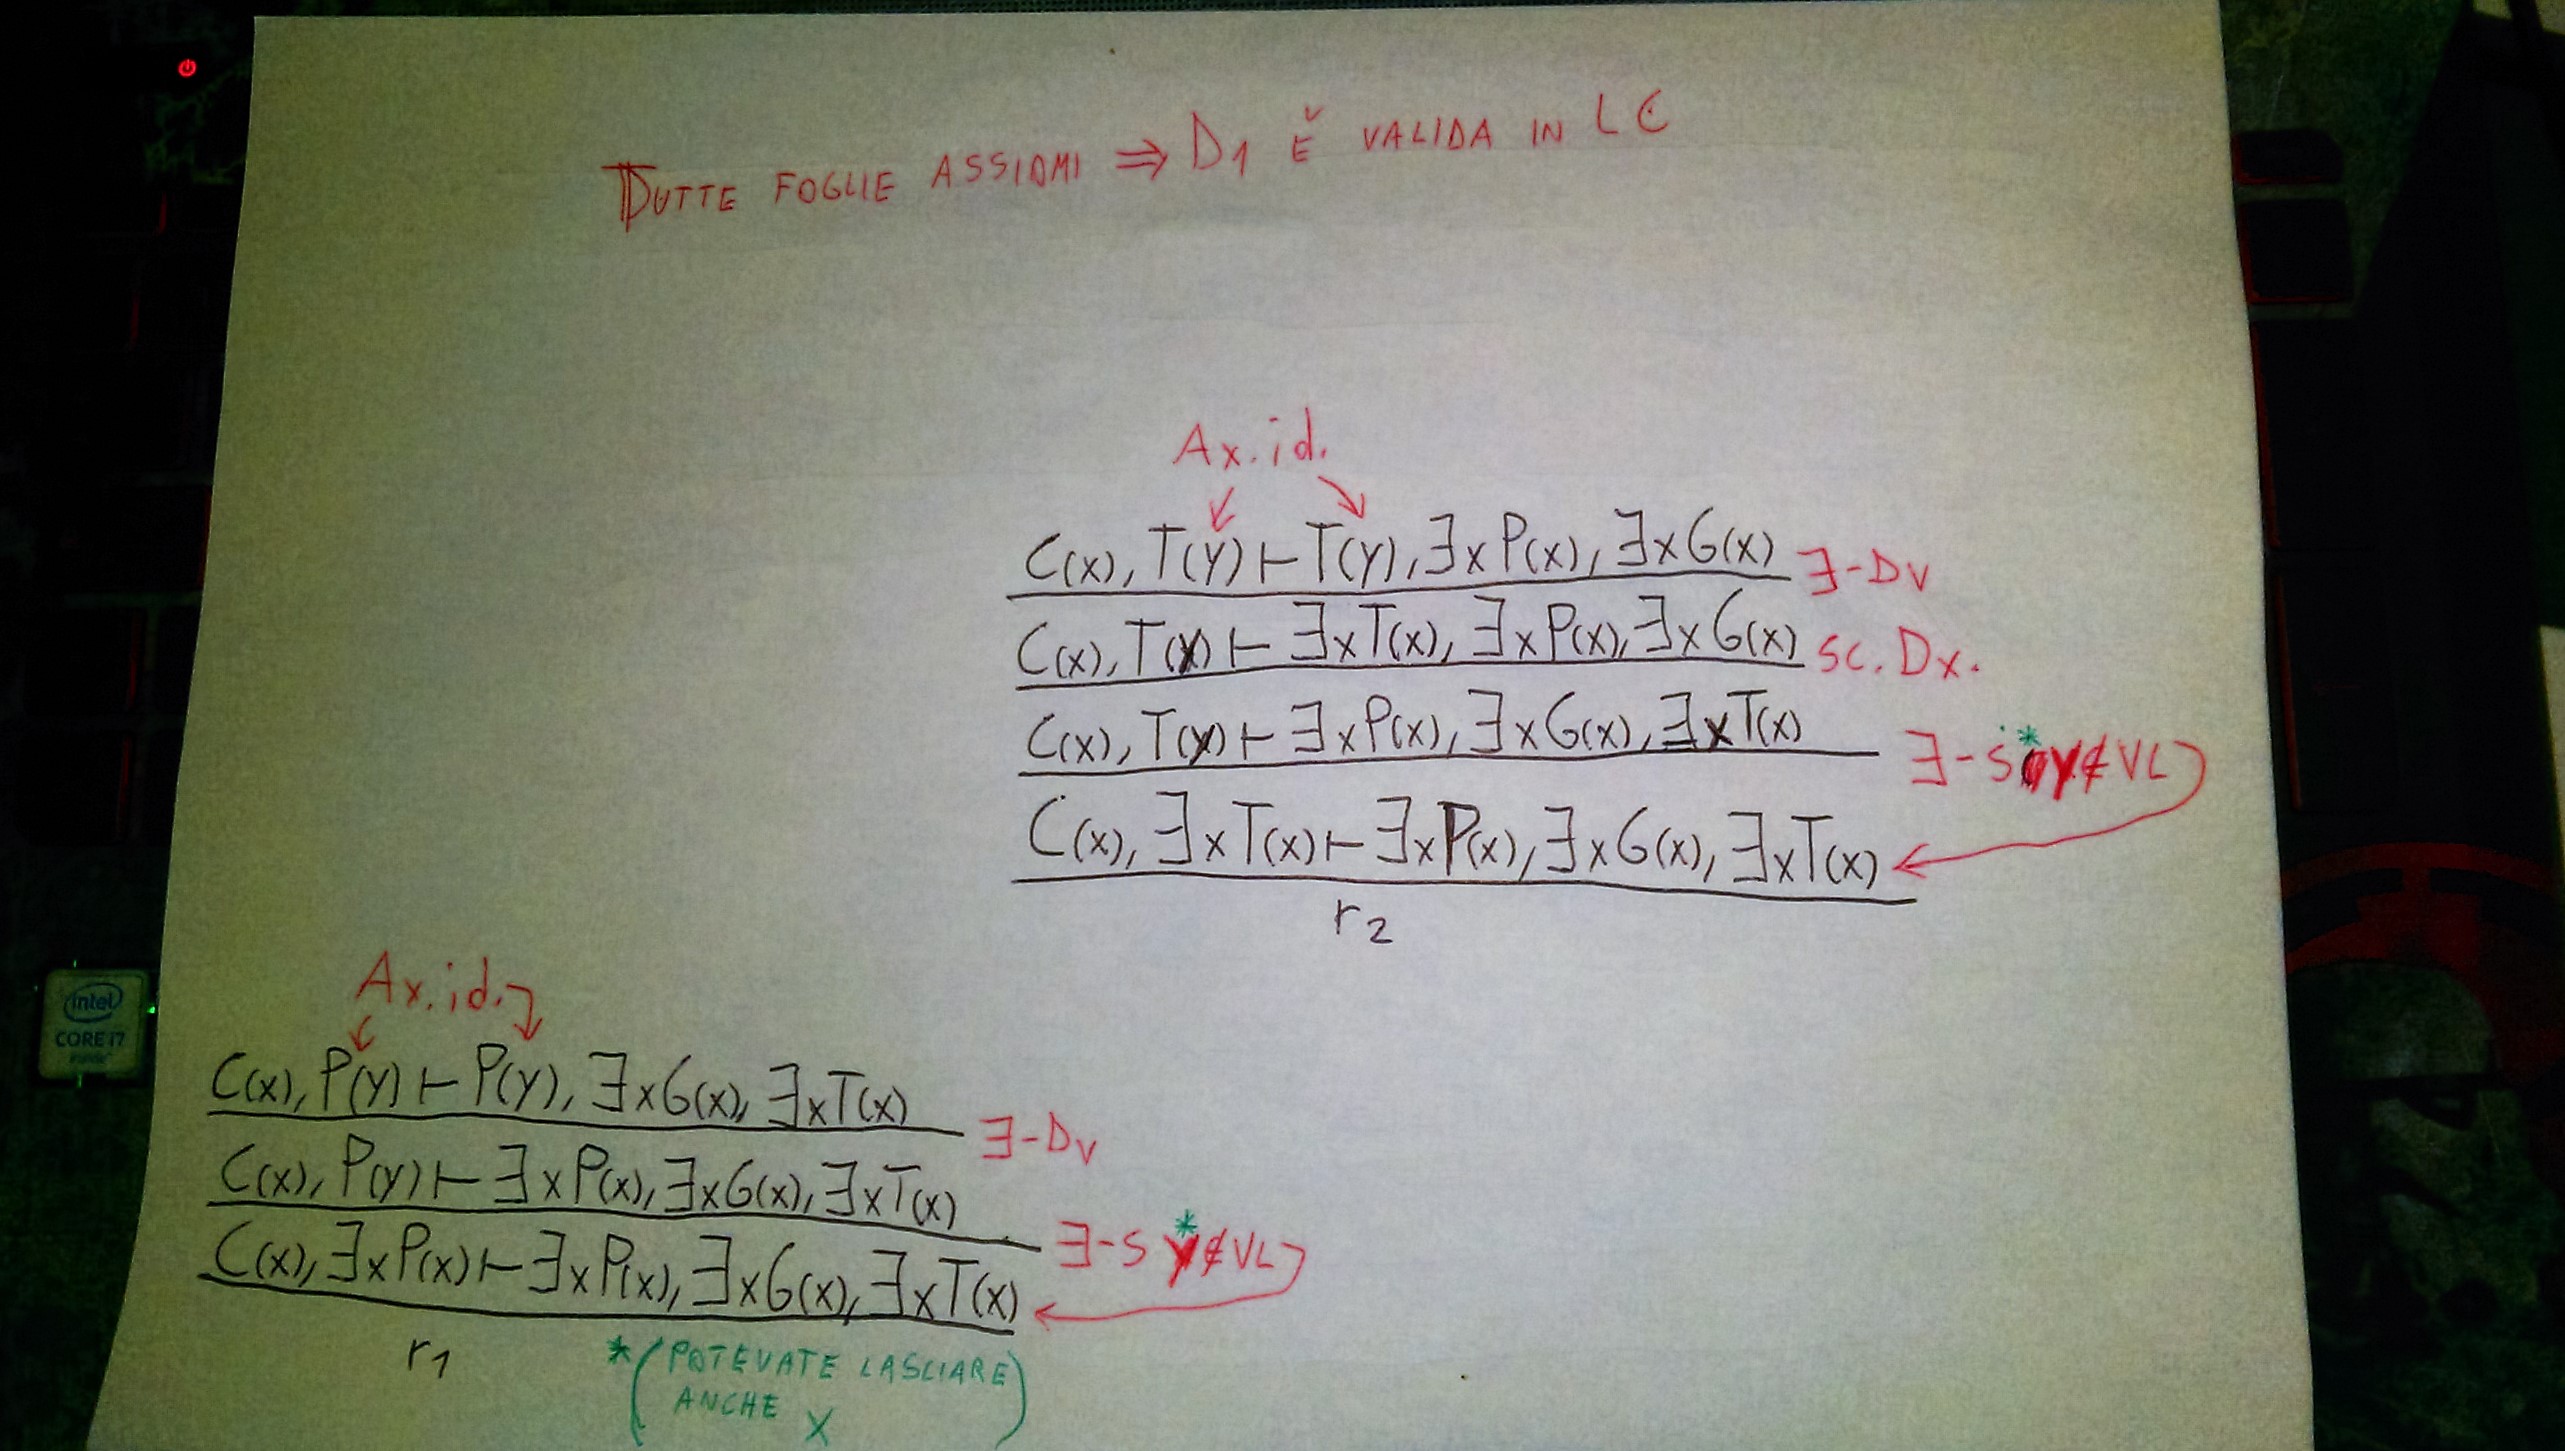 TUTTE FOGLIE ASSIOMI ⇒ D1 È VALIDA IN LC
Ax. id.
C(x), T(y) ⊢ T(y), ∃x P(x), ∃x G(x) ∃-Dv
C(x), T(y) ⊢ ∃x T(x), ∃x P(x), ∃x G(x) sc. Dx.
C(x), T(y) ⊢ ∃x P(x), ∃x G(x), ∃x T(x) ∃-S y* ∉ VL
C(x), ∃x T(x) ⊢ ∃x P(x), ∃x G(x), ∃x T(x)
r2
Ax. id.
C(x), P(y) ⊢ P(y), ∃x G(x), ∃x T(x) ∃-Dv
C(x), P(y) ⊢ ∃x P(x), ∃x G(x), ∃x T(x) ∃-S y* ∉ VL
C(x), ∃x P(x) ⊢ ∃x P(x), ∃x G(x), ∃x T(x)
r1
* (POTEVATE LASCIARE
ANCHE X)
intel
CORE i7
inside